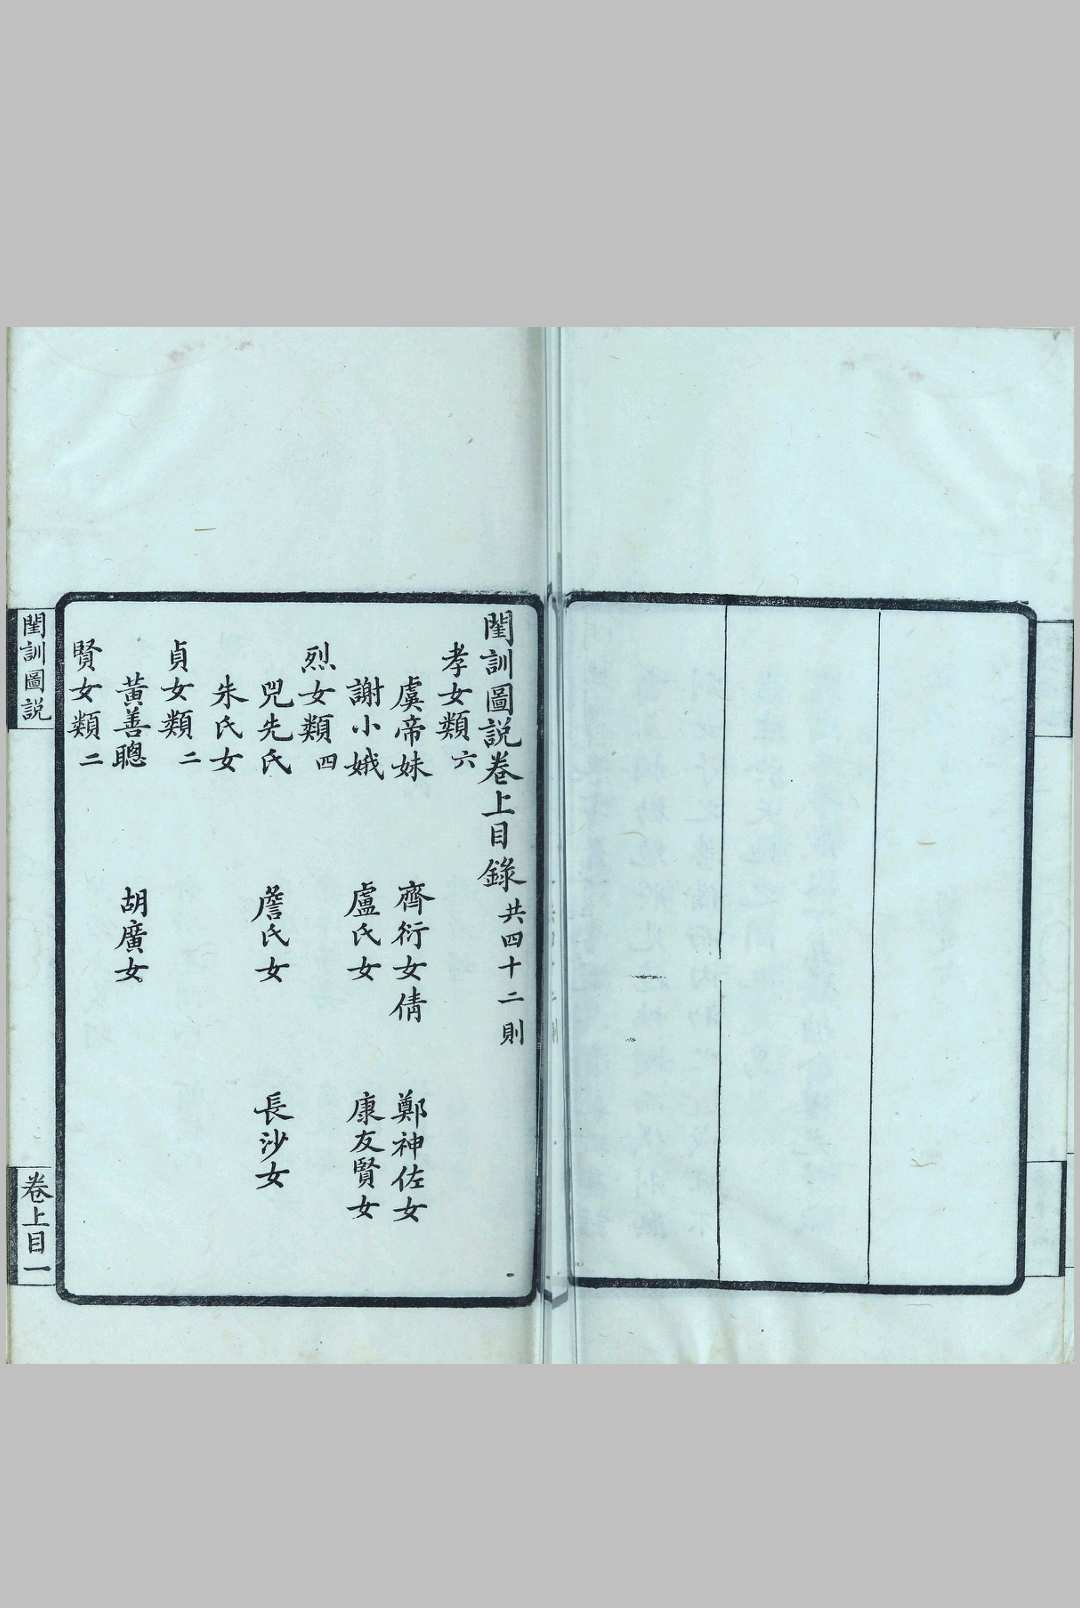 閨訓圖説卷上目錄 共四十二則
孝女類 六
虞帝妹 齊衍女倩 鄭神佐女
謝小娥 盧氏女 康友賢女
烈女類 四
兕先氏 詹氏女 長沙女
朱氏女
貞女類 二
黃善聰 胡廣女
賢女類 二
閨訓圖説
卷上目一